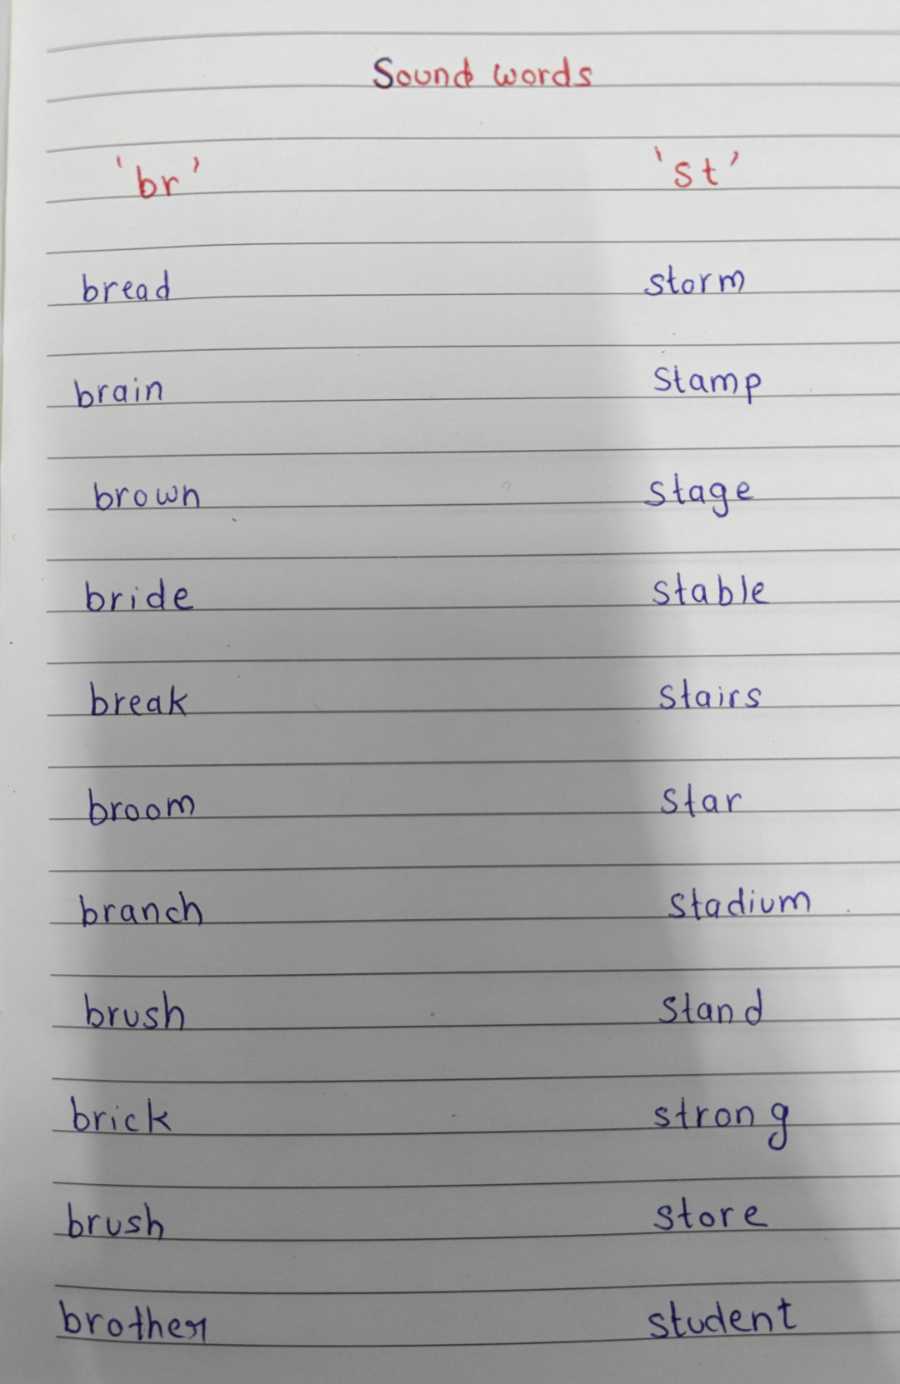 Sound words
'br' 'st'
bread storm
brain stamp
brown stage
bride stable
break stairs
broom star
branch stadium
brush stand
brick strong
brush store
brother student